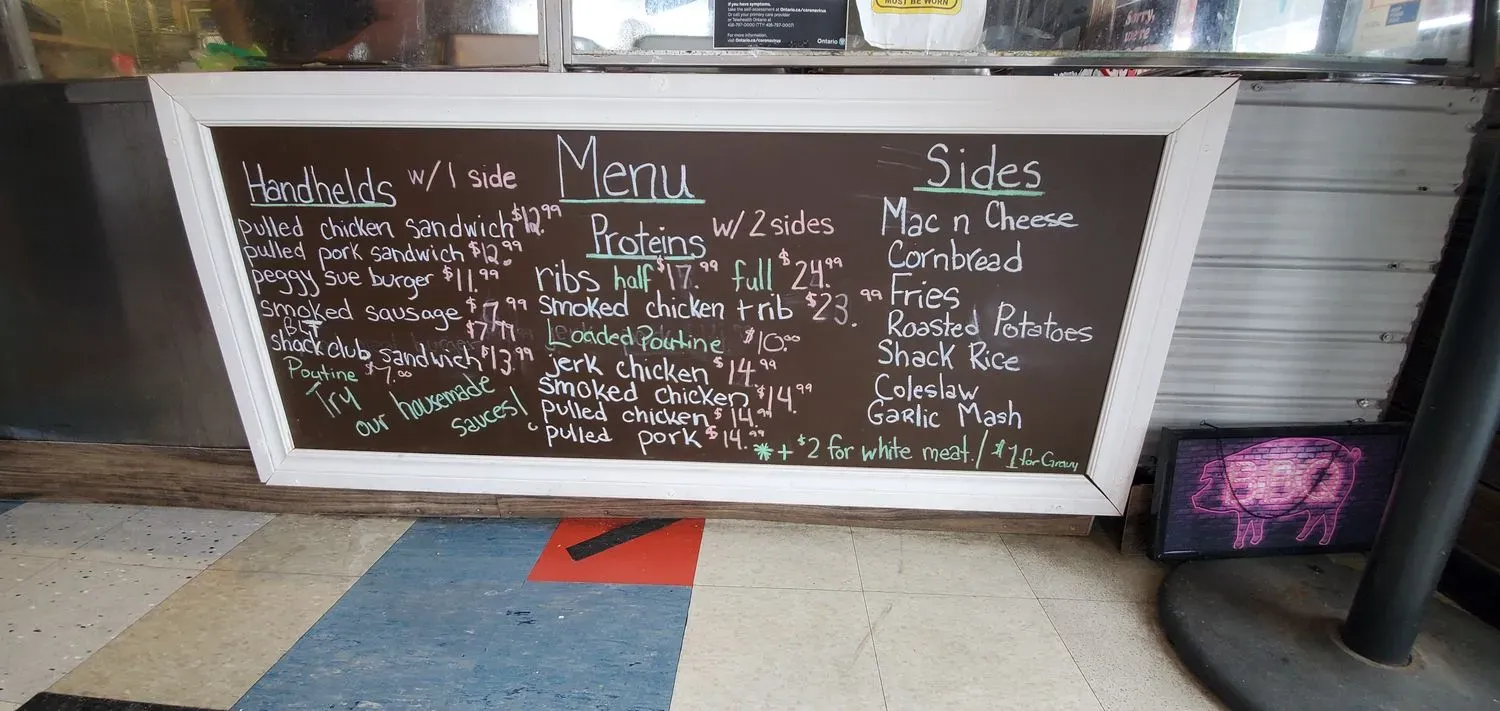 If you have symptoms,
Take the self-assessment at Ontario.ca/coronavirus
Or call your primary care provider
or Telehealth Ontario at
For more information,
visit Ontario.ca/coronavirus
Ontario
MUST BE WORN
Sorry,
we're
Menu
Handhelds w/1 side
pulled chicken sandwich $12.99
pulled pork sandwich $12.99
peggy sue burger $11.99
smoked sausage $7.99
BLT $7.99
shack club sandwich $13.99
Poutine $7.00
Try
our housemade
sauces!
Proteins w/2 sides
ribs half $17.99 full $24.99
smoked chicken + rib $23.99
Loaded Poutine $10.00
jerk chicken $14.99
smoked chicken $14.99
pulled chicken $14.99
pulled pork $14.99
Sides
Mac n Cheese
Cornbread
Fries
Roasted Potatoes
Shack Rice
Coleslaw
Garlic Mash
*+$2 for white meat./$1 for Gravy
BBQ